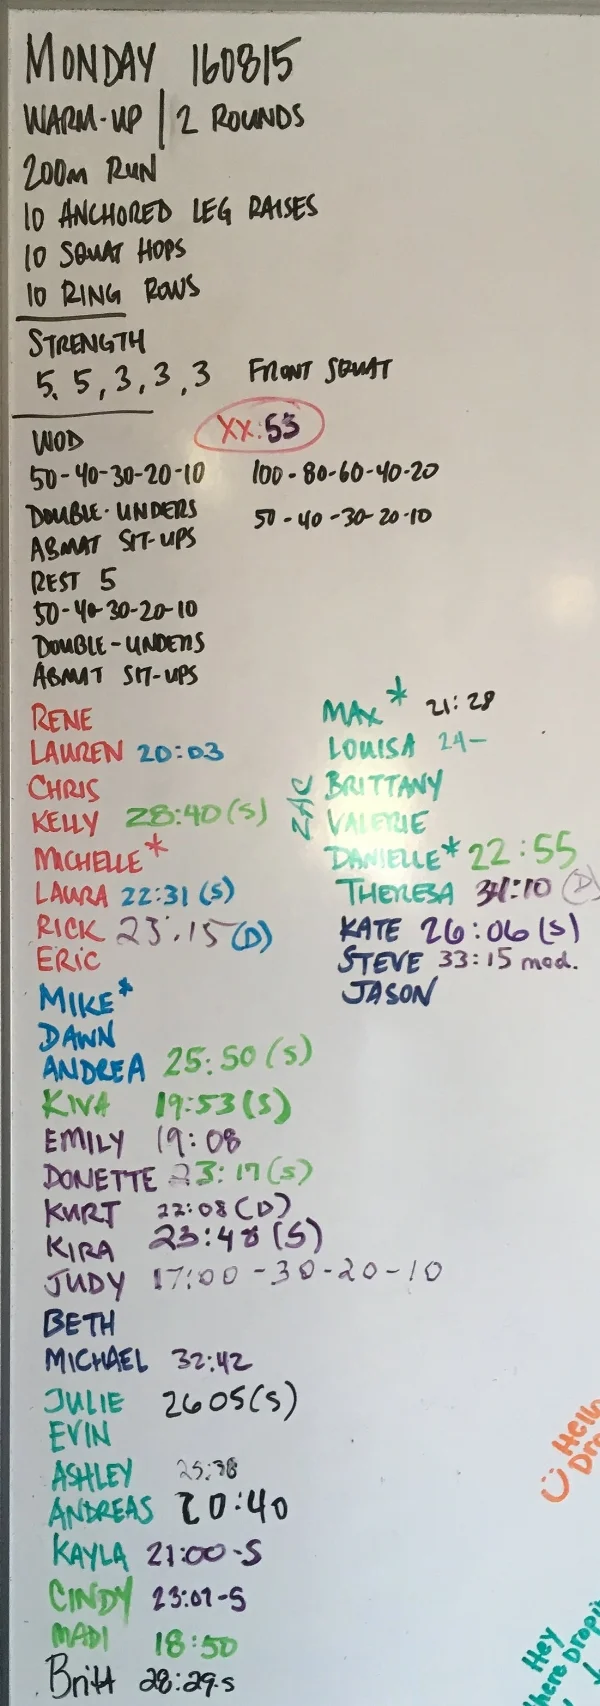 MONDAY 160815
WARM-UP | 2 ROUNDS
200m RUN
10 ANCHORED LEG RAISES
10 SQUAT HOPS
10 RING ROWS
STRENGTH
5, 5, 3, 3, 3 FRONT SQUAT
WOD XX:53
50-40-30-20-10 100-80-60-40-20
DOUBLE-UNDERS 50-40-30-20-10
ABMAT SIT-UPS
REST 5
50-40-30-20-10
DOUBLE-UNDERS
ABMAT SIT-UPS
RENE
LAUREN 20:03
CHRIS
KELLY 28:40 (S)
MICHELLE*
LAURA 22:31 (S)
RICK 23:15 (D)
ERIC
MIKE*
DAWN
ANDREA 25:50 (S)
KIVA 19:53 (S)
EMILY 19:08
DONETTE 23:17 (S)
KURT 22:08 (D)
KIRA 23:48 (S)
JUDY 17:00 -30-20-10
BETH
MICHAEL 32:42
JULIE 2605 (S)
EVIN
ASHLEY 25:38
ANDREAS 20:40
KAYLA 21:00-S
CINDY 23:01-S
MADI 18:50
Britt 28:29-S
MAX* 21:28
LOUISA 24-
ZAC
BRITTANY
VALERIE
DANIELLE* 22:55
THERESA :10 (D)
KATE 26:06 (S)
STEVE 33:15 mod.
JASON
Hello
Hey